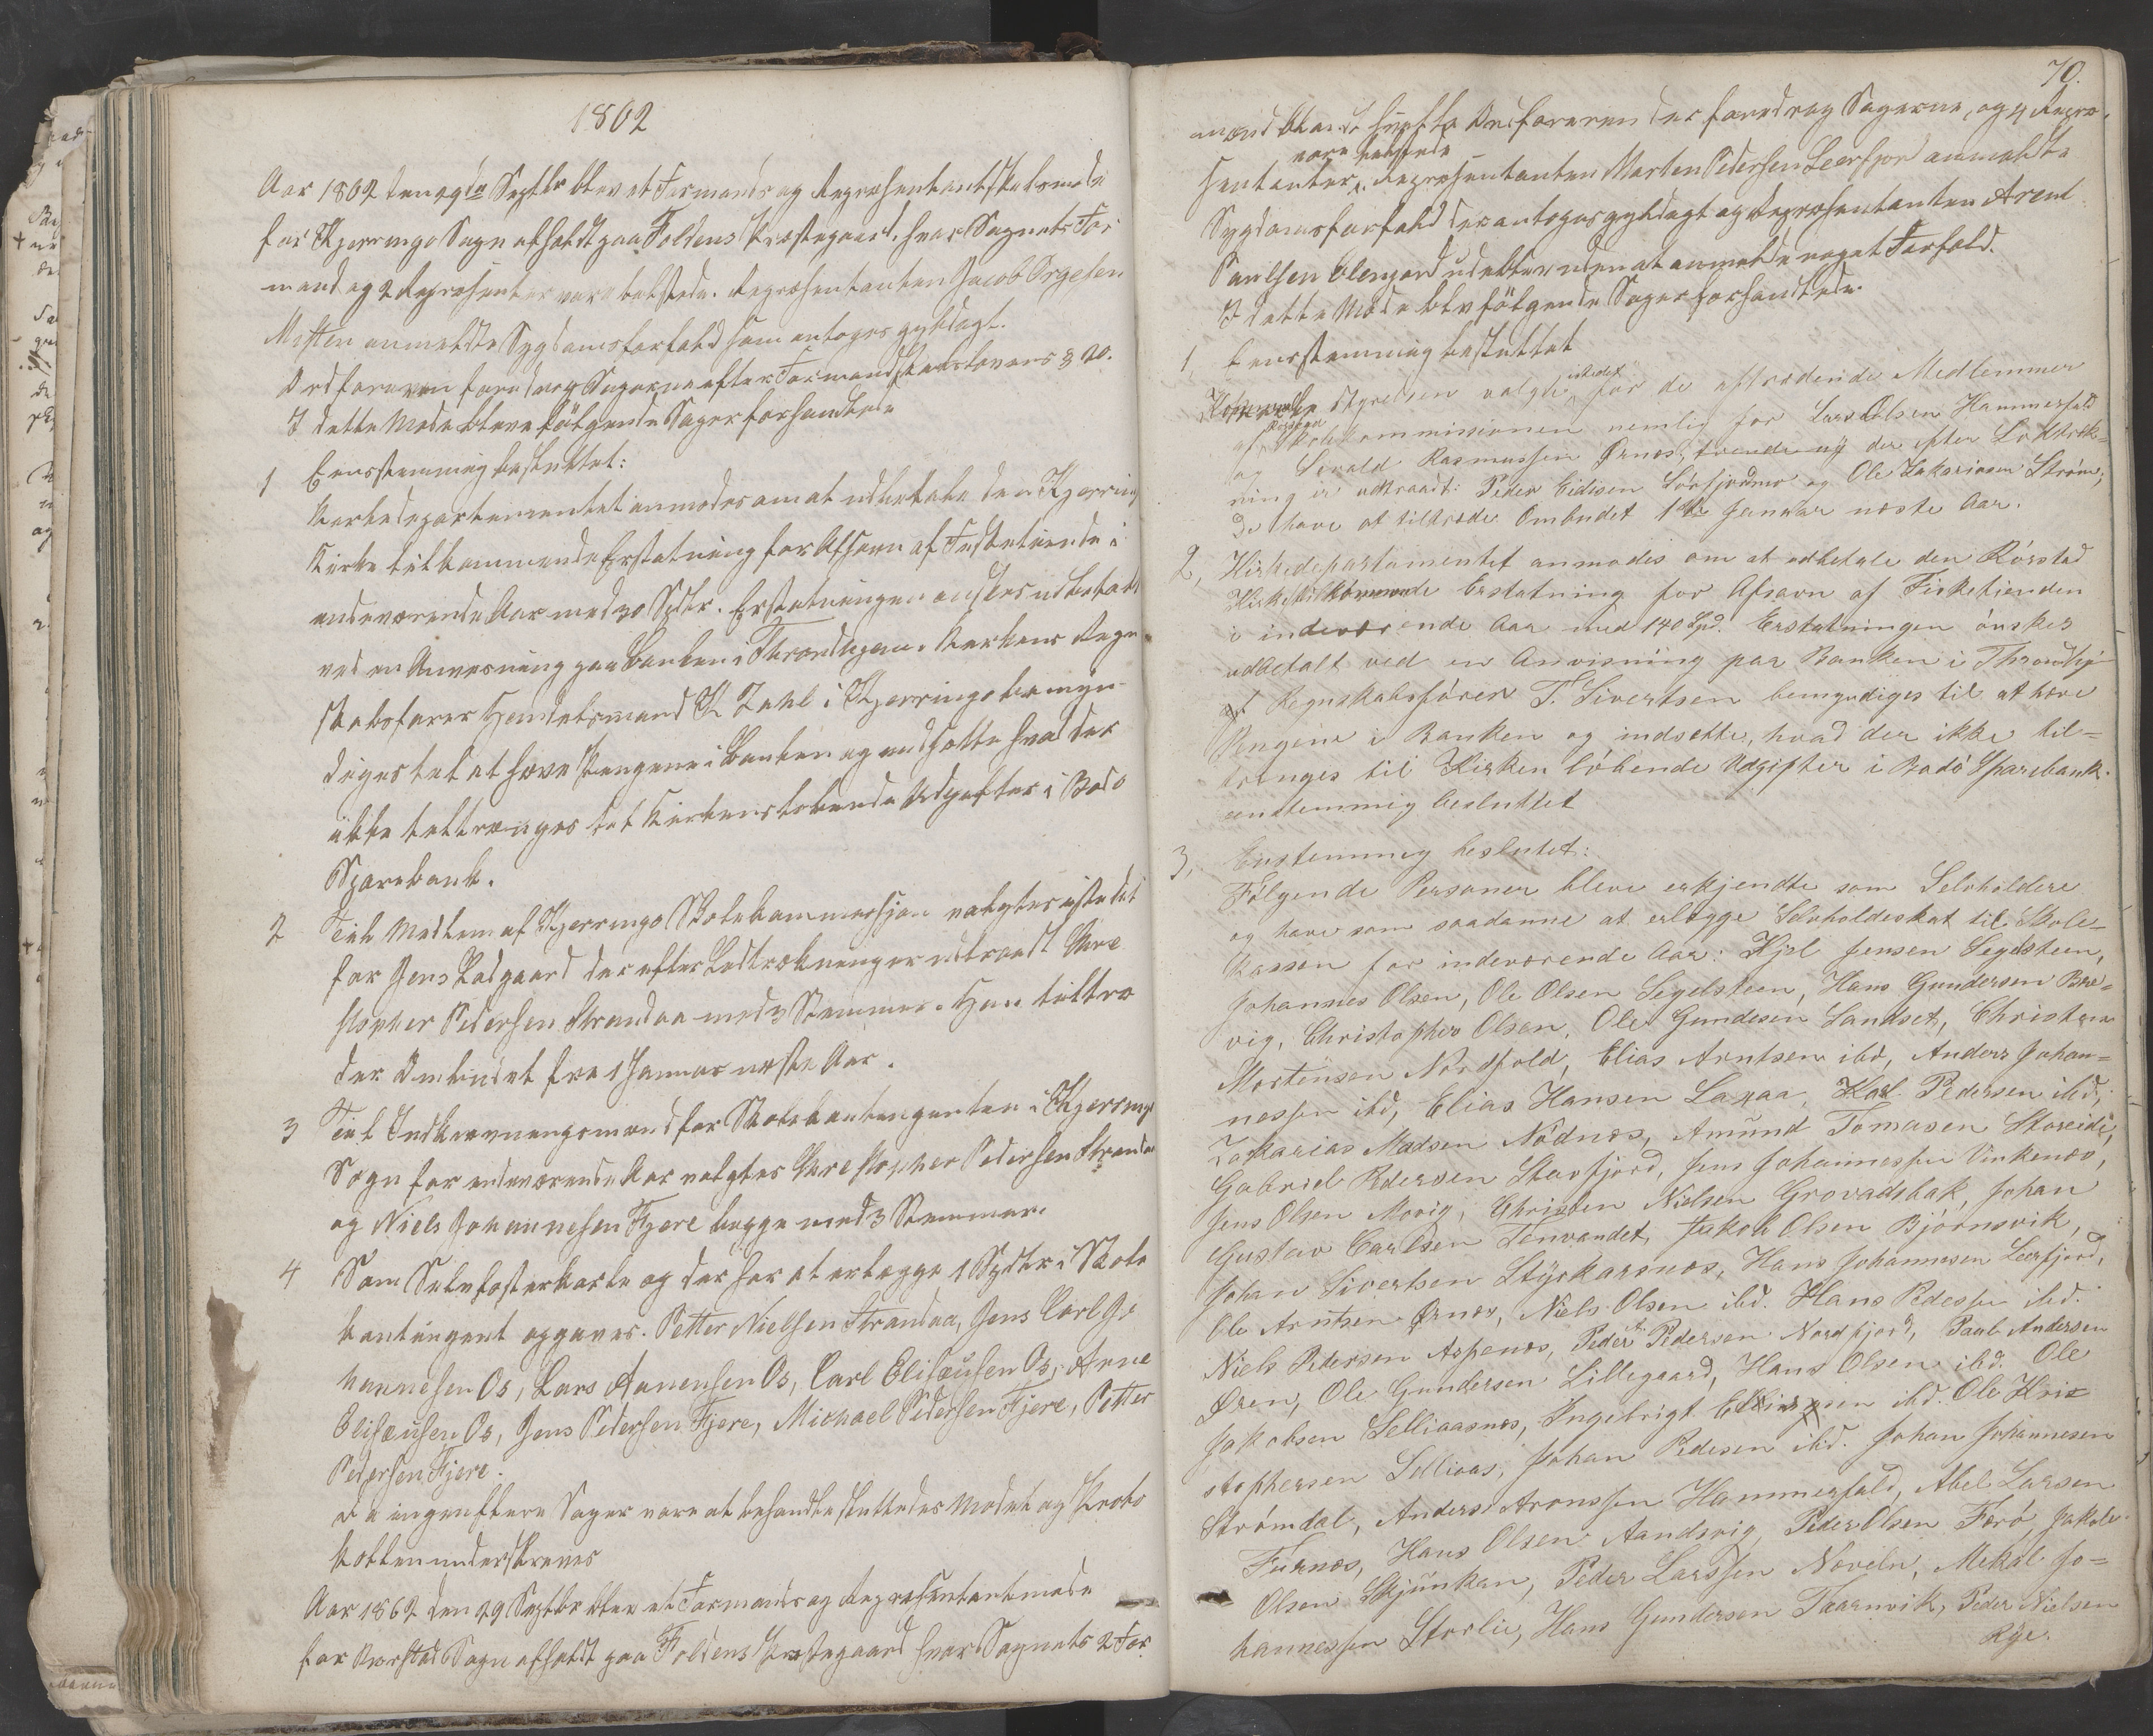 1862
Aar 1862 den 29de Septbr blev et Formands og Repræsentantskabsmøde
for Kjerringø Sogn afholdt paa Foldens Præstegaard, hvor Sognets For-
mand og 2 Repræsenter vare tilstede. Repræsentanten Jacob Örgesen
Misten anmeldte Sygdomsforfald som antoges gyldigt.
Ordføreren foredrog Sagerne efter Formandskabslovens § 20.
I dette Møde bleve følgende Sager forhandlede
1 Eensstemmig besluttet:
Kirkedepartementet anmodes om at udbetale den Kjerringø
Kirke tilkommende Erstatning for Afsavn af Fisketiende i
indeværende Aar med 30 Spdlr. Erstatningen ønskes udbetalt
ved en Anvisning paa Banken i Throndhjem. Kirkens Regn-
skabsfører Handelsmand K Zahl i Kjerringø bemyn-
diges til at hæve Pengene i Banken og indsætte hvad der
ikke tiltrænges til Kirkens løbende Udgifter i Bodø
Sparebank.
2 Til Medlem af Kjerringø Skolekommission valgtes istedet
for Jens Ladgaard der efter Lodtrækning er udtraadt Chri-
stopher Pedersen Strandaa med 3 Stemmer. Han tiltræ-
der Ombudet fra 1 Januar næste Aar.
3 Til Indkrævningsmænd for Skolekontingenten i Kjerringø
Sogn for indeværende Aar valgtes Christopher Pedersen Strandaa
og Niels Johannesen Fjere begge med 3 Stemmer.
4 Som Selvfosterkarle og der har at erlægge 1 Spdlr i Skole-
kontingent opgaves. Petter Nielsen Strandaa, Jens Carl Jo-
hannesen Os, Lars Anensen Os, Carl Elisæusen Os, Arne
Elisæusen Os, Jens Pedersen Fjere, Michael Pedersen Fjere, Petter
Pedersen Fjere.
Da ingen flere Sager vare at behandle sluttedes Mødet og Proto-
kollen underskreves
Aar 1862 den 29 Septbr blev et Formands og Repræsentantmøde
for Rørstad Sogn afholdt paa Foldens Præstegaard hvor Sognets 2 For-
70.
mænd blandt hvilke Ordføreren der foredrog Sagerne, og 4 Repræ-
vare tilstede
sentanter. Repræsentanten Morten Pedersen Leerfjord anmeldte
Sygdomsforfald der antoges gyldigt og Repræsentanten Arent
Paulsen Elvegard udeblev uden at anmelde noget Forfald.
I dette Møde blev følgende Sager forhandlede.
1, Eensstemmig besluttet
styrelsen valgte istedet for de aftrædende Medlemmer
af Rørstad Skolekommissionen nemlig for Lars Olsen Hammerfald
og Sivald Rasmussen Ørnes, der efter Lodtræk-
ning er udtraadt: Peder Eidisen Sørfjordmo og Ole Zakariasen Strøm,
De have at tiltræde Ombudet 1ste Januar næste Aar.
2, Kirkedepartementet anmodes om at udbetale den Rørstad
Kirke tilkommende Erstatning for Afsavn af Fisketienden
i indeværende Aar med 140 Spd. Erstatningen ønskes
udbetalt ved en Anvisning paa Banken i Throndhj-
Regnskabsfører T. Sivertsen bemyndiges til at hæve
Pengene i Banken og indsætte, hvad der ikke til=
trænges til Kirken løbende Udgifter i Bodø Sparebank.
eenstemmig besluttet
3, Enstemmig beslutet:
Følgende Personer bleve erkjendte som Selvholdere
og have som saadanne at erlægge Selvholdeskat til Skole-
kassen for indeværende Aar: Kjel Jensen Segelsteen,
Johannes Olsen, Ole Olsen Segelsteen, Hans Gundersen Bre=
vig, Christopher Olsen, Ole Gundesen Sandset, Christen
Mortensen Nordfold, Elias Arntsen ibd, Anders Johan=
nessen ibd, Elias Hansen Laxaa, Karl Pedersen ibd,
Zakarias Madsen Nødnes, Amund Tomasen Storeide,
Gabriel Pedersen Stavfjord, Jens Johannessen Vinkenes,
Jens Olsen Movig, Christen Nielsen Grovadsbak, Johan
Gustav Carlsen Tenvandet, Jakob Olsen Bjørnsvik,
Johan Sivertsen Styrkarsnes, Hans Johannesen Leerfjord,
Ole Arntsen Ørnes, Niels Olsen ibd. Hans Pedersen ibd.
Niels Pedersen Aspenes, Peder Pedersen Nordfjord, Paul Andersen
Øren, Ole Gundersen Lillegaard, Hans Olsen ibd. Ole
Jakobsen Selliaasnes, Ingebrigt ibd. Ole Kri=
stophersen Selliaas, Johan Pedesen ibd. Johan Johannesen
Strømdal, Anders Aronssen Hammerfald, Abel Larsen
Furnes, Hans Olsen Aandsvig, Peder Olsen Færø, Jakob
Olsen Skjunken, Peder Larssen Noveln, Mekal Jo=
hannessen Storlie, Hans Gundersen Taarnvik, Peder Nielsen
Rye.